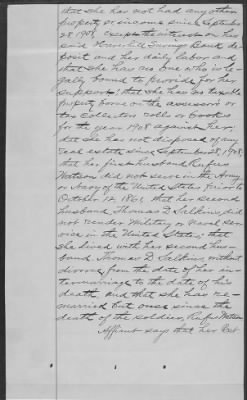 that she has not had any other
property or income since September
28 1908, except the interest on her
said Haverhill Savings Bank de-
posit and her daily labor and
that she has no one who is le-
gally bound to provide for her
support; that she has no taxable
property borne on the assessors or
tax collectors rolls or books
for the year 1908 against her;
that she has not disposed of any
real estate since Sept. 28, 1908,
that her first husband Rufus
Watson did not serve in the Army
or Navy of the United States prior to
October 12, 1861, that her second
husband Thomas D. Silkins, did
not render Military or Naval ser-
vice in the United States, that
she lived with her second hus-
band Thomas D. Silkins, without
divorce, from the date of her in-
termarriage to the date of his
death, and that she has re-
married but once since the
death of the soldier, Rufus Watson
Affiant say that her